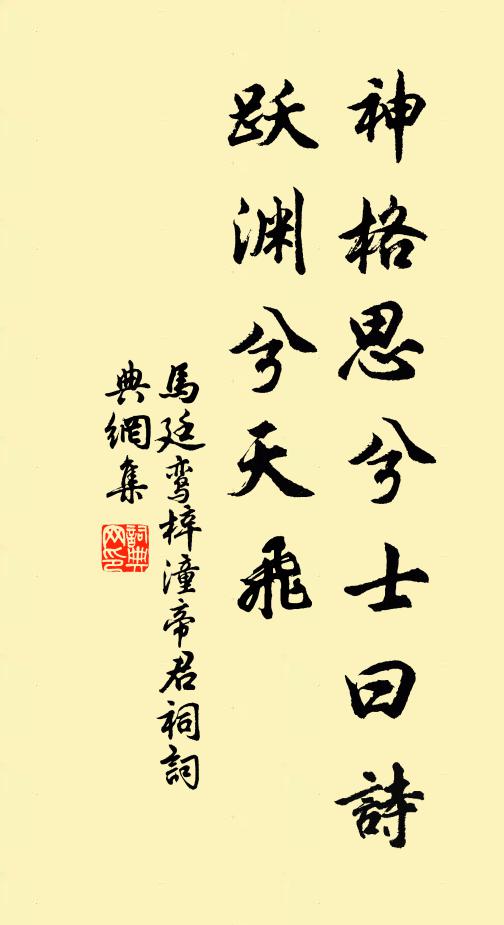 神格思兮士曰詩
跃渊兮天飛
馬廷鸾梓潼帝君祠詞
典網集
詞典
网印